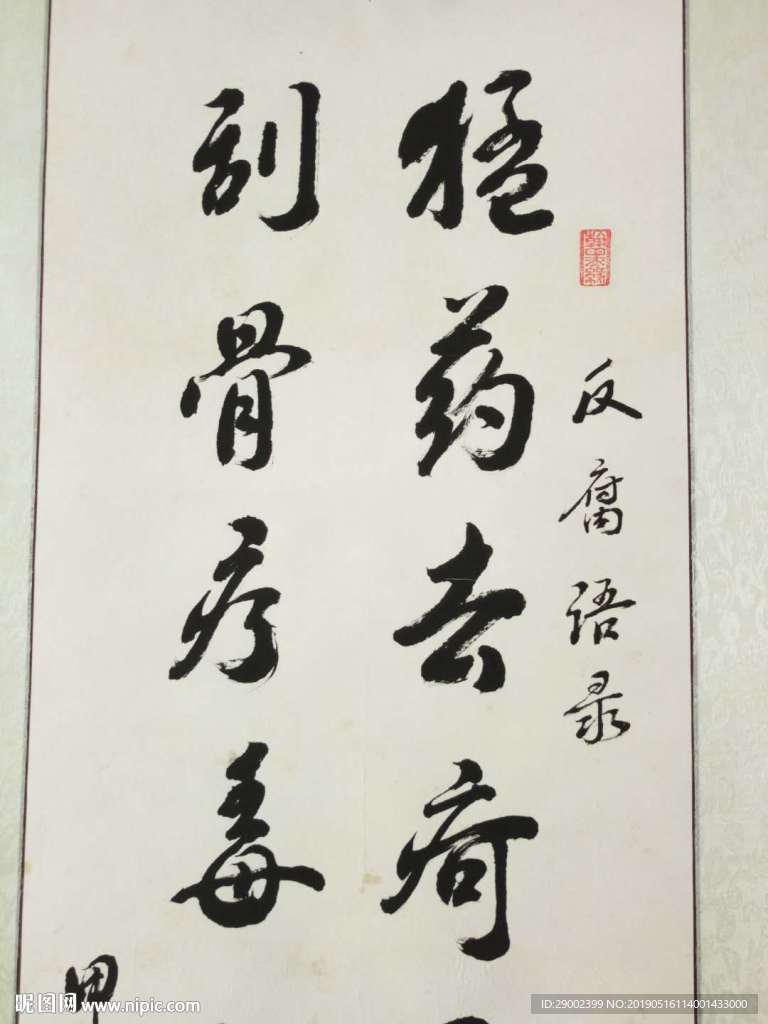 反腐语录
猛药去疴
刮骨疗毒
甲
昵图网 www.nipic.com
ID:29002399 NO:20190516114001433000